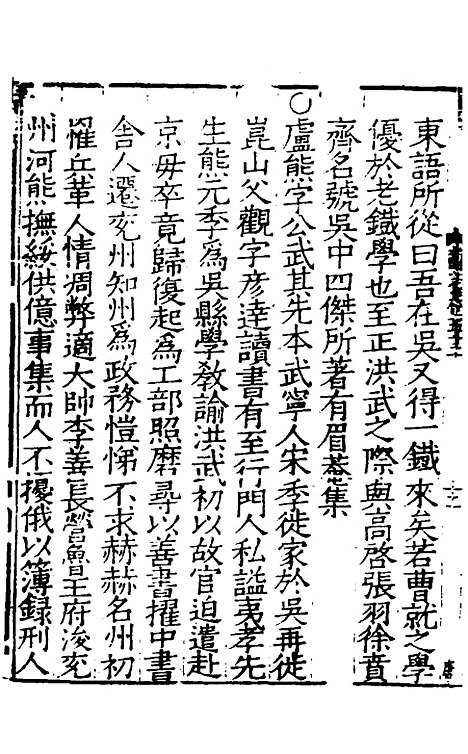 東語所從曰吾在吳又得一鐵來矣若曹就之學
優於老鐵學也至正洪武之際與高啓張羽徐賁
齊名號吳中四傑所著有眉菴集
○盧熊字公武其先本武寧人宋季徙家於吳再徙
崑山父觀字彦達讀書有至行門人私謚夷孝先
生熊元季為吳縣學教諭洪武初以故官迫遣赴
京毋卒竟歸復起為工部照磨尋以善書擢中書
舎人遷兖州知州為政務愷悌不求赫赫名州初
罹兵革人情凋弊適大帥李善長營魯王府浚兖
州河熊撫綏供億事集而人不擾俄以簿録刑人